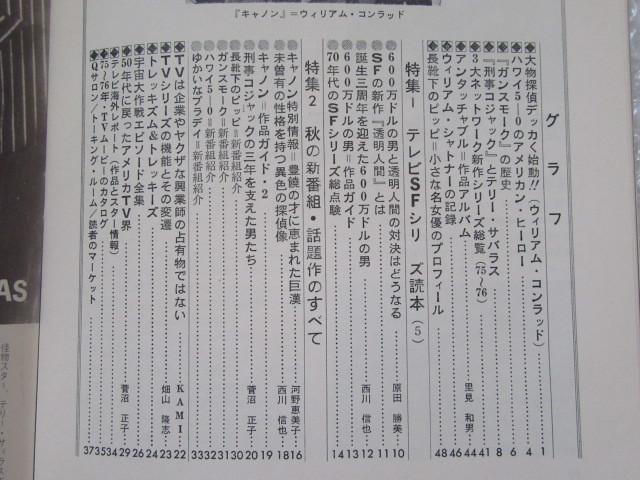 『キャノン』＝ウィリアム・コンラッド
グラフ
◆大物探偵デッカく始動!!（ウィリアム・コンラッド）……1
◆ハワイ5-0のアメリカン・ヒーロー……4
◆『ガンスモーク』の歴史……6
◆『刑事コジャック』とテリー・サバラス……8
◆3大ネットワーク新作シリーズ総覧（75〜76）……41
◆アンタッチャブル＝作品アルバム……里見 和男 44
◆ウィリアム・シャトナーの記録……46
◆長靴下のピッピ＝小さな名女優のプロフィール……48
特集1 テレビSFシリーズ読本（5）
◆600万ドルの男と透明人間の対決はどうなる……原田 勝美 10
◆SFの新作『透明人間』とは……11
◆誕生三周年を迎えた600万ドルの男……西川 信也 12
◆600万ドルの男＝作品ガイド……13
◆70年代のSFシリーズ総点験……14
特集2 秋の新番組・話題作のすべて
◆キャノン特別情報＝豊饒の才に恵まれた巨漢……河野恵美子 16
◆未曽有の性格を持つ異色の探偵像……西川 信也 18
◆キャノン＝作品ガイド・2……19
◆刑事コジャックの三年を支えた男たち……菅沼 正子 20
◆長靴下のピッピ＝新番組紹介……30
◆ガンスモーク＝新番組紹介……31
◆ハワイ5-0＝新番組紹介……32
◆ゆかいなブラディ＝新番組紹介……33
◆TVは企業やヤクザな興業師の占有物ではない……KAMI 22
◆TVシリーズの機能とその変遷……畑山 隆志 23
◆トレッキズム&トレッキーズ……24
◆宇宙大作戦エピソード全集……26
◆50年代に戻ったアメリカTV界……菅沼 正子 29
◆テレビ海外レポート（作品とスター情報）……34
◆75〜76年・TVムービーのカタログ……35
◆Qサロン／トーキング・ルーム／読者のマーケット……37
AS
怪物スター、テリー・サバラス